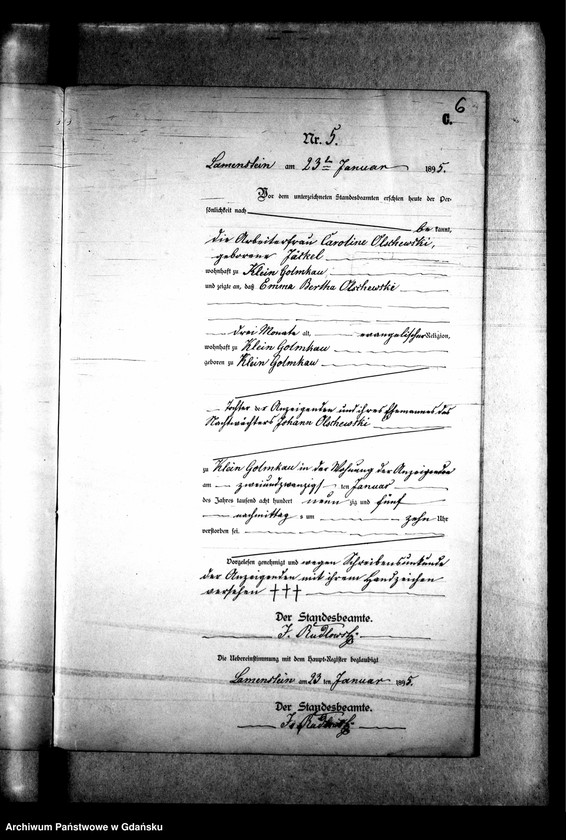 6
C.
Nr. 5.
Lamenstein am 23ten Januar 1895.
Vor dem unterzeichneten Standesbeamten erschien heute der Per-
sönlichkeit nach
be kannt,
die Arbeiterfrau Caroline Olschewski,
geborene Jäckel
wohnhaft zu Klein Golmkau
und zeigte an, daß Emma Bertha Olschewski
drei Monate alt, evangelischer Religion,
wohnhaft zu Klein Golmkau
geboren zu Klein Golmkau
Tochter der Anzeigenden und ihres Ehemannes des
Nachtwächters Johann Olschewski
zu Klein Golmkau in der Wohnung der Anzeigenden
am zweiundzwanzigsten Januar
des Jahres tausend acht hundert neun zig und fünf
nachmittags um zehn Uhr
verstorben sei.
Vorgelesen genehmigt und wegen Schreibensunkunde
der Anzeigenden mit ihrem Handzeichen
versehen †††
Der Standesbeamte.
Die Uebereinstimmung mit dem Haupt-Register beglaubigt
Lamenstein am 23 ten Januar 1895.
Der Standesbeamte.
Archiwum Państwowe w Gdańsku